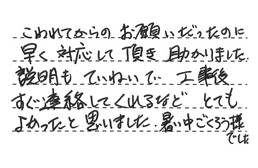 こわれてからのお願いだったのに
早く対応して頂き助かりました
説明もていねいで 工事後
すぐ連絡してくれるなど とても
よかったと思いました 暑い中ごくろう様
でした